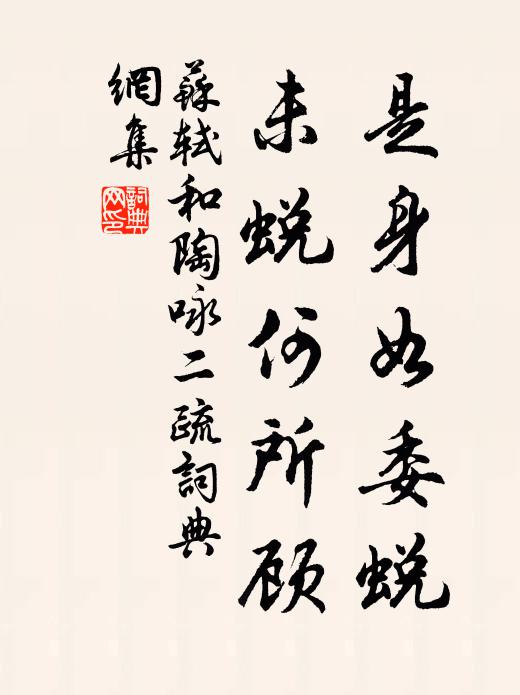 是身如委蜕
未蜕何所顾
蘇軾和陶咏二疏詞典
網集
詞典
网印